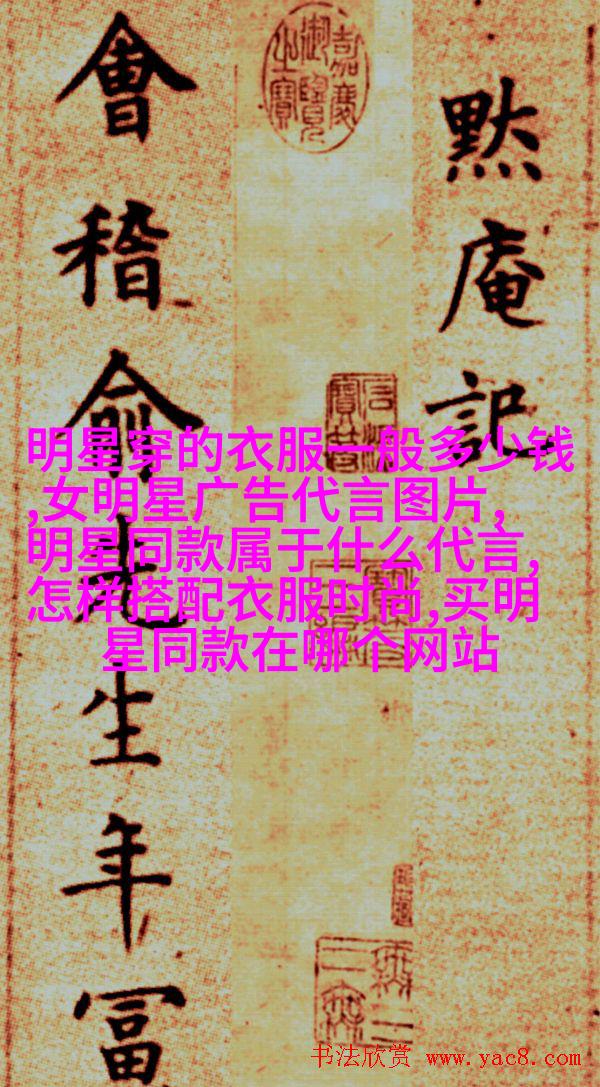 默庵記
會稽俞先生年冨
嘉慶
御覽
之寶
石渠
寶笈
明星穿的衣服一般多少钱
,女明星广告代言图片,
明星同款属于什么代言,
怎样搭配衣服时尚,买明
星同款在哪个网站
书法欣赏 www.yac8.com